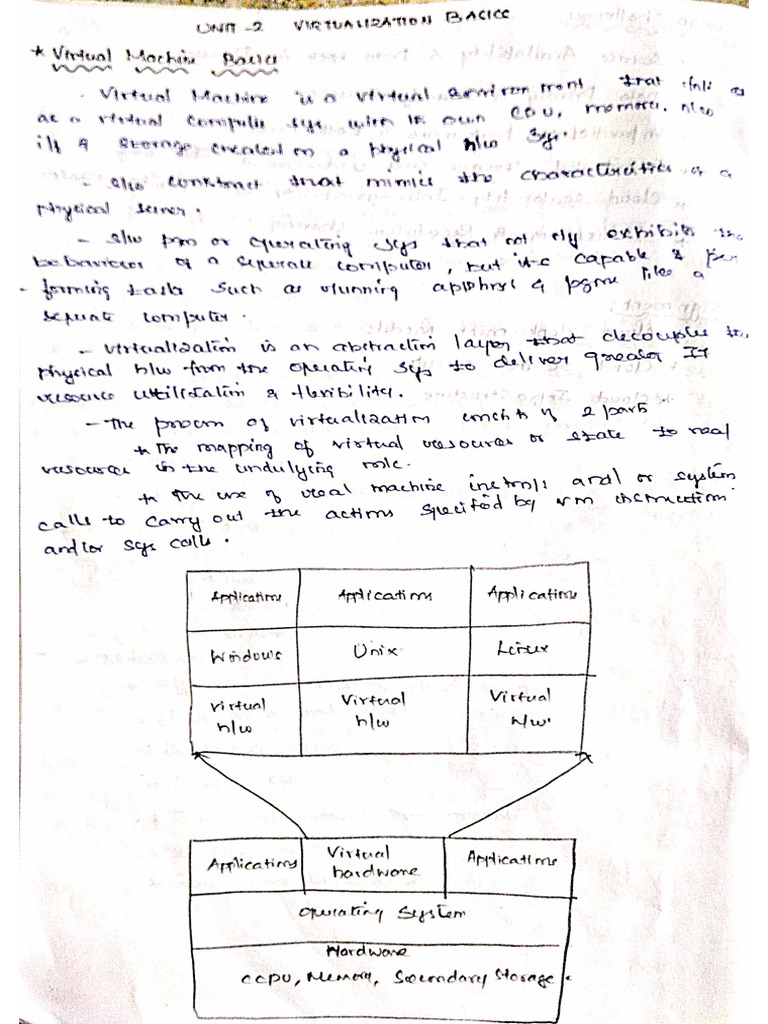 UNIT -2 VIRTUALIZATION BASICS
* Virtual Machine Basics
- Virtual Machine is a virtual environment that
as a virtual computer sys with its own CPU, memory, n/w
i/f & storage created on a physical h/w sys.
- s/w construct that mimics the characteristics of a
physical server.
- s/w pgm or operating sys that not only exhibits the
behaviour of a seperate computer, but is capable of per
- forming tasks such as running & pgms like a
seperate computer.
- Virtualization is an abstraction layer that decouples the
physical h/w from the operating sys to deliver greater IT
resource utilization & flexibility.
- The process of virtualization consists of 2 parts
* The mapping of virtual resources or state to real
resources in the undulying
* The use of real machine and/or system
calls to carry out the actions specified by VM instruction
and/or sys calls.
Applications Applications Applications
Windows Unix Linux
Virtual Virtual Virtual
h/w h/w h/w
Applications Virtual Applications
hardware
Operating System
Hardware
CCPU, Memory, Secondary Storage.